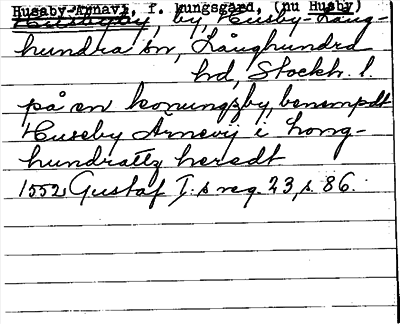 Husaby-Arnavi, f. kungsgård, (nu Husby)
by, Husby-Lång-
hundra sn, Långhundra
hd, Stockh. l.
på en konungxby, benempdt
"Huseby Arnevij i Long-
hundrattz heredt
1552, Gustaf I:s reg. 23, s. 86.